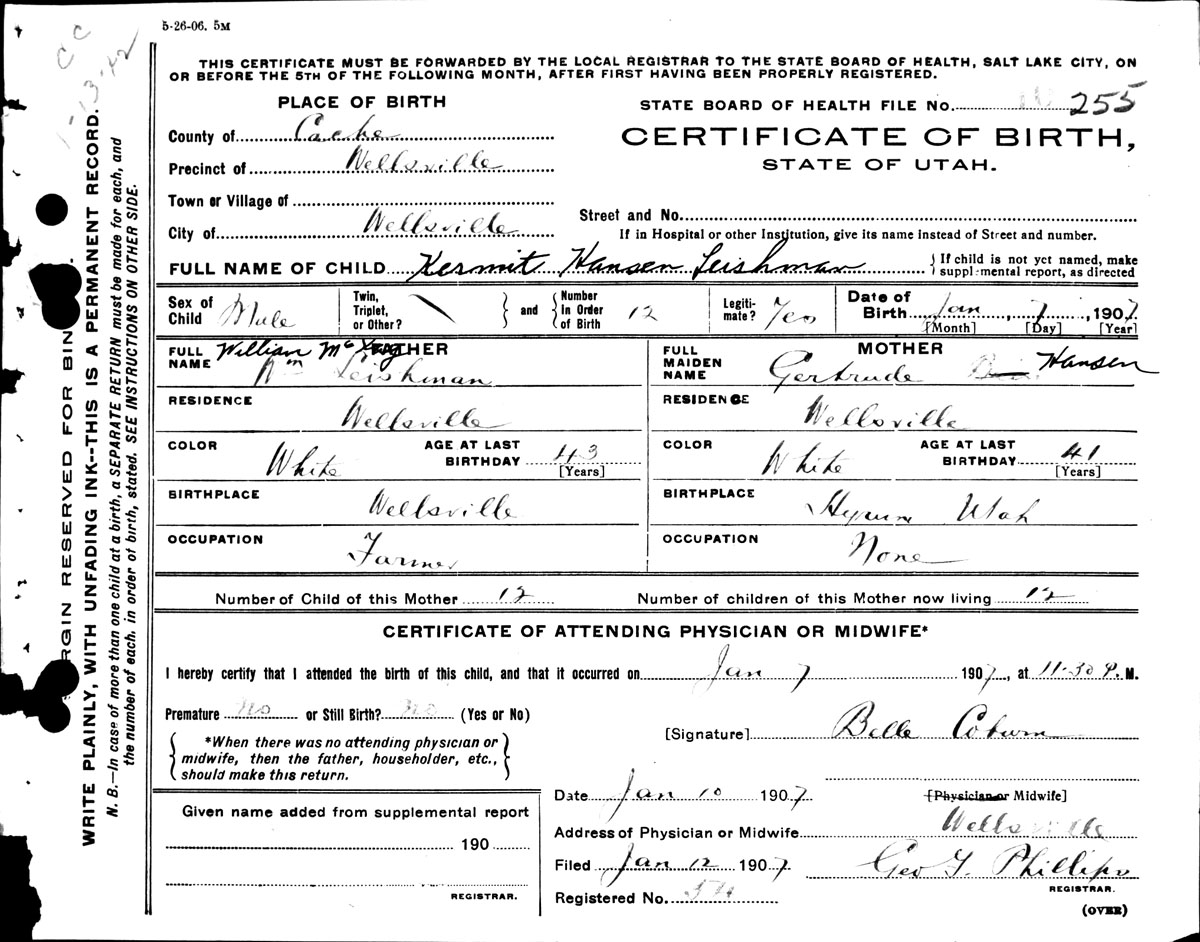 5-26-06. 5M
C C
1-13-42
THIS CERTIFICATE MUST BE FORWARDED BY THE LOCAL REGISTRAR TO THE STATE BOARD OF HEALTH, SALT LAKE CITY, ON
OR BEFORE THE 5TH OF THE FOLLOWING MONTH, AFTER FIRST HAVING BEEN PROPERLY REGISTERED.
PLACE OF BIRTH
STATE BOARD OF HEALTH FILE No. 255
County of Cache
CERTIFICATE OF BIRTH,
STATE OF UTAH.
Precinct of Wellsville
Town or Village of
Street and No.
City of Wellsville
If in Hospital or other Institution, give its name instead of Street and number.
FULL NAME OF CHILD Kermit Hansen Leishman
{ If child is not yet named, make
supplemental report, as directed
Sex of Child Male
Twin, Triplet, or Other? \
and
Number In Order of Birth 12
Legiti-mate? Yes
Date of Birth Jan, 7, 1907.
[Month] [Day] [Year]
FULL NAME
FATHER
William Mc
Wm Leishman
FULL MAIDEN NAME
MOTHER
Gertrude Hansen
RESIDENCE Wellsville
RESIDENCE Wellsville
COLOR White
AGE AT LAST BIRTHDAY 43
[Years]
COLOR White
AGE AT LAST BIRTHDAY 41
[Years]
BIRTHPLACE Wellsville
BIRTHPLACE Hyrum Utah
OCCUPATION Farmer
OCCUPATION None
Number of Child of this Mother 12
Number of children of this Mother now living 12
CERTIFICATE OF ATTENDING PHYSICIAN OR MIDWIFE*
I hereby certify that I attended the birth of this child, and that it occurred on Jan 7 1907, at 11-30 P. M.
Premature No or Still Birth? No (Yes or No)
*When there was no attending physician or
midwife, then the father, householder, etc.,
should make this return.
[Signature] Belle Coburn
Date Jan 10 1907
[Physician or Midwife]
Given name added from supplemental report
190
REGISTRAR.
Address of Physician or Midwife Wellsville
Filed Jan 12 1907
Geo T. Phillips
REGISTRAR.
Registered No.
(OVER)
MARGIN RESERVED FOR BIN
WRITE PLAINLY, WITH UNFADING INK--THIS IS A PERMANENT RECORD.
N. B.—In case of more than one child at a birth, a SEPARATE RETURN must be made for each, and
the number of each, in order of birth, stated. SEE INSTRUCTIONS ON OTHER SIDE.